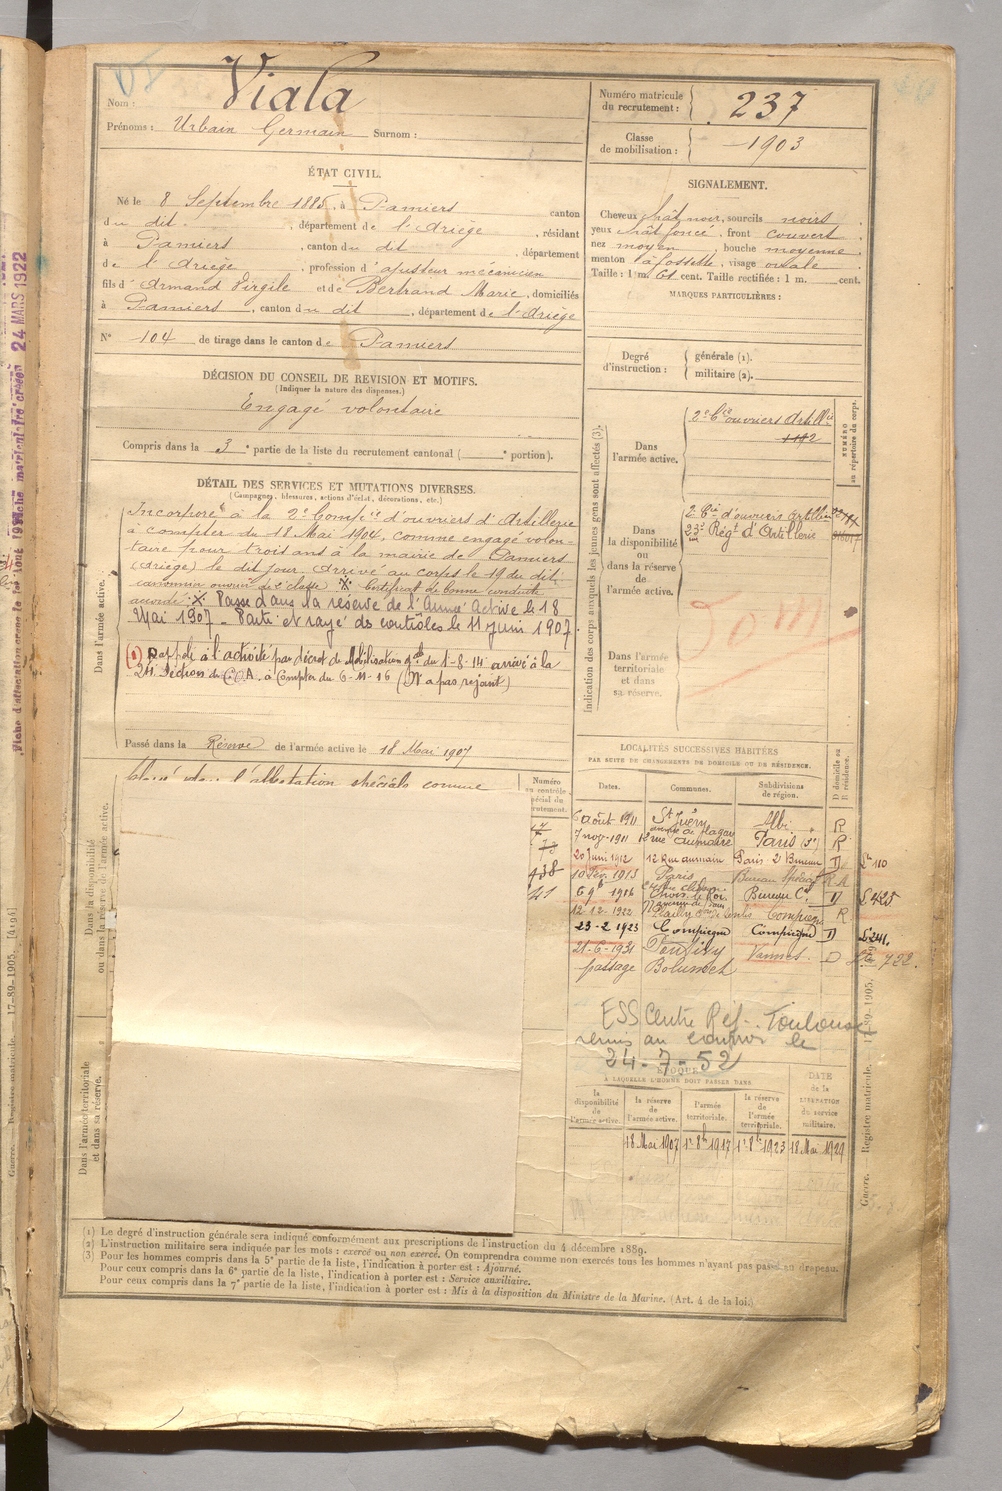 Nom : Viala
Prénoms : Urbain Germain Surnom :
Numéro matricule
du recrutement : 237
Classe
de mobilisation : 1903
ÉTAT CIVIL.
Né le 8 Septembre 1885, à Pamiers canton
du dit, département de l'Ariège, résidant
à Pamiers, canton du dit, département
de l'Ariège, profession d'ajusteur mécanicien
fils d'Armand Virgile et de Bertrand Marie, domiciliés
à Pamiers, canton du dit, département de l'Ariège
N° 104 de tirage dans le canton de Pamiers
SIGNALEMENT.
Cheveux chât noir, sourcils noirs
yeux chât foncé, front couvert
nez moyen, bouche moyenne
menton à fossette, visage ovale
Taille : 1 m. 61 cent. Taille rectifiée : 1 m. cent.
MARQUES PARTICULIÈRES :
DÉCISION DU CONSEIL DE REVISION ET MOTIFS.
(Indiquer la nature des dispenses.)
Engagé volontaire
Compris dans la 3e partie de la liste du recrutement cantonal ( e portion).
Degré
d'instruction :
générale (1).
militaire (2).
DÉTAIL DES SERVICES ET MUTATIONS DIVERSES.
(Campagnes, blessures, actions d'éclat, décorations, etc.)
Dans l'armée active.
Incorporé à la 2e Compie d'ouvriers d'Artillerie
à compter du 18 Mai 1904, comme engagé volon-
taire pour trois ans à la mairie de Pamiers
(Ariège) le dit jour. Arrivé au corps le 19 du dit
canonnier ouvrier de 2e classe X Certificat de bonne conduite
accordé X Passé dans la réserve de l'Armée Active le 18
Mai 1907 - Parti et rayé des contrôles le 11 Juin 1907.
(1) Rappelé à l'activité par décret de Mobilisation Gale du 1-8-14 arrivé à la
24 Section de C.O.A. à compter du 6-11-16 (N'a pas rejoint)
Passé dans la Réserve de l'armée active le 18 Mai 1907
Indication des corps auxquels les jeunes gens sont affectés (3).
NUMÉRO
au répertoire du corps.
Dans
l'armée active.
2e Cie ouvriers Artillie
1192
Dans
la disponibilité
ou
dans la réserve
de
l'armée active.
2e Cie d'ouvriers artillerie
23e Régt d'Artillerie
Dans l'armée
territoriale
et dans
sa réserve.
Dom
Dans la disponibilité
ou dans la réserve de l'armée active.
l'attestation spéciale comme
Dans l'armée territoriale
et dans sa réserve.
Numéro
au contrôle
spécial du
recrutement.
41
LOCALITÉS SUCCESSIVES HABITÉES
PAR SUITE DE CHANGEMENTS DE DOMICILE OU DE RÉSIDENCE.
Dates. Communes. Subdivisions
de région. D domicile ou
R résidence.
6 août 1911 St Juéry Albi R
7 nov 1911 12 rue Aumaire Paris R
20 Juin 1912 12 Rue aumaire Paris 2e Bureau D Le 110
10 Fév. 1913 Paris Bureau
1916 Choisy le Roi Bureau D L 425
12-12-1922 Compiègne R
23-2 1923 Compiègne Compiègne D L 241
21-6-1931 Pontivy Vannes D 722
passage
ESS Centre Ref - Toulouse
remis au le
24-7-52
ÉPOQUE
À LAQUELLE L'HOMME DOIT PASSER DANS
la
disponibilité
de
l'armée active.
la réserve
de
l'armée active.
l'armée
territoriale.
la réserve
de
l'armée
territoriale.
DATE
de la
LIBÉRATION
du service
militaire.
18 Mai 1907 1r 8b 1917 1r 8b 1923 18 Mai 1929
(1) Le degré d'instruction générale sera indiqué conformément aux prescriptions de l'instruction du 4 décembre 1889.
(2) L'instruction militaire sera indiquée par les mots : exercé ou non exercé. On comprendra comme non exercés tous les hommes n'ayant pas passé au drapeau.
(3) Pour les hommes compris dans la 5e partie de la liste, l'indication à porter est : Ajourné.
Pour ceux compris dans la 6e partie de la liste, l'indication à porter est : Service auxiliaire.
Pour ceux compris dans la 7e partie de la liste, l'indication à porter est : Mis à la disposition du Ministre de la Marine. (Art. 4 de la loi.)
Guerre. — Registre matricule. — 17-89-1905. [4194]
24 MARS 1922